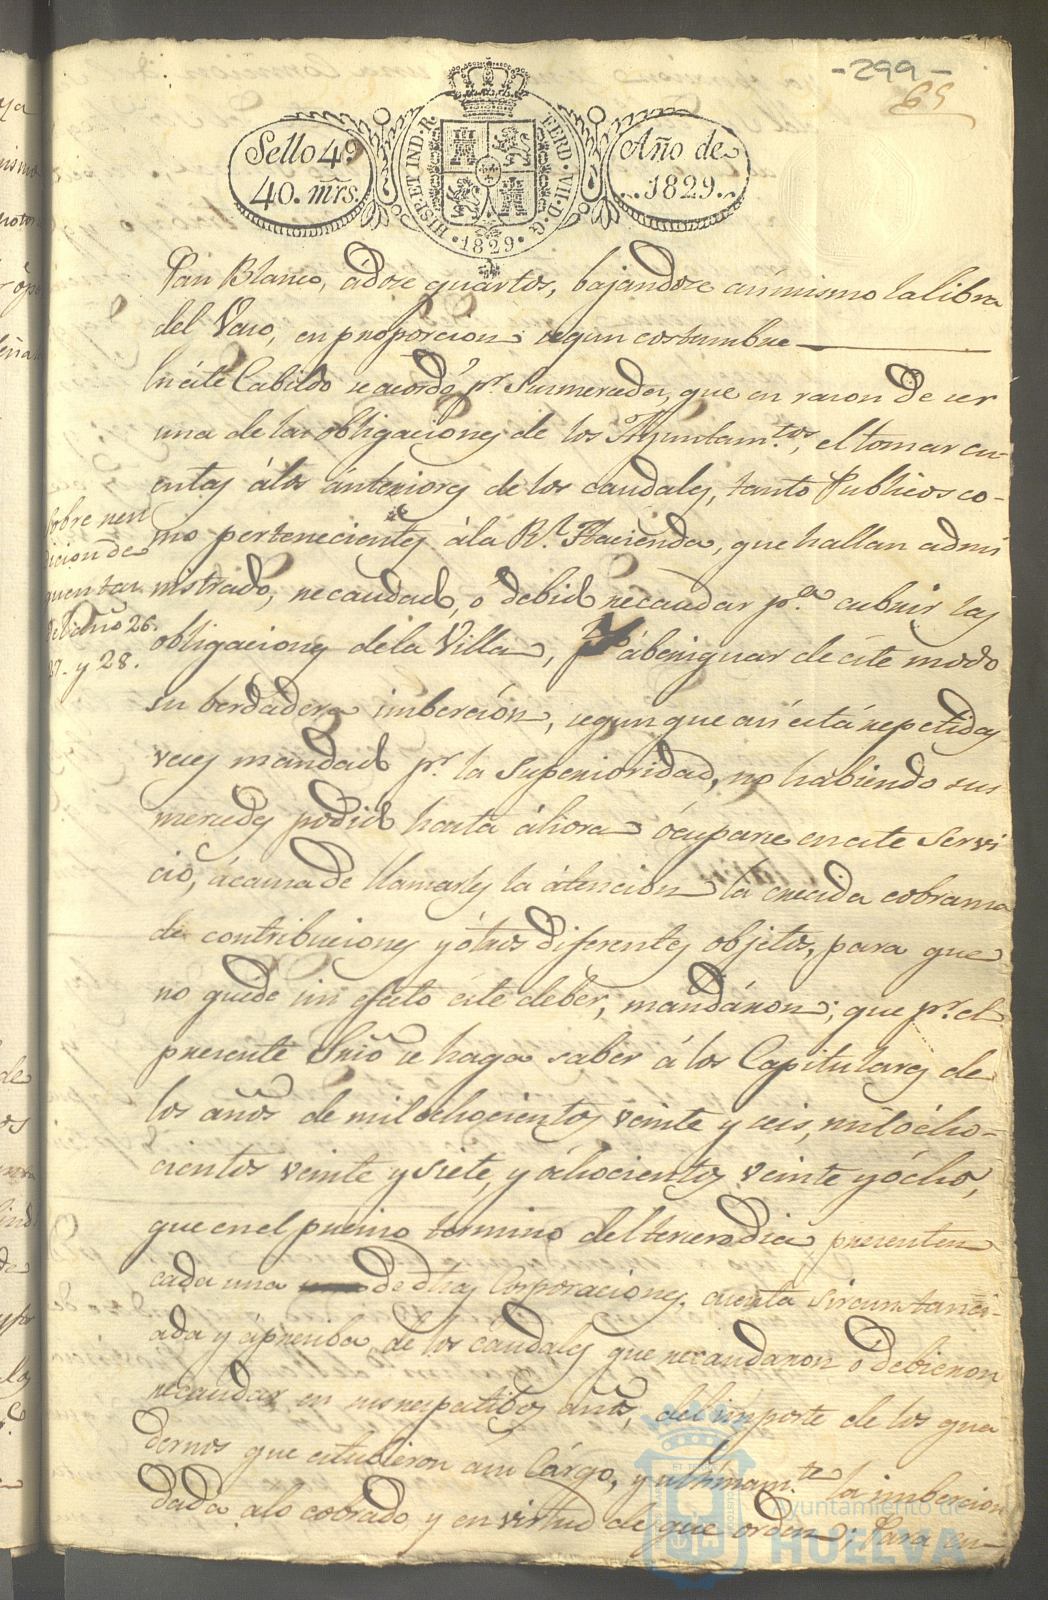 -299-
65
Sello 4º
40. mrs.
HISP. ET IND. R.
FERD. VII. D. G.
·1829·
Año de
1829.
Pan Blanco, ádose quartos, bajandose asimismo la libra
del Vaso, en proporcion segun costumbre
En éste Cabildo se acordó pr. Susmercedes, que en rason de ser
una de las obligaciones de los Ayuntamtos, el tomar cu-
entas álos ánteriores de los caudales, tanto Publicos co-
mo pertenecientes ála Rl. Hacienda, que hallan admi
nistrado, recaudado, ó debido recaudar pa. cubrir las
obligaciones dela Villa, pa ábeniguar de éste modo
su berdadera imberción, segun que así está repetidas
veces mandado pr. la Superioridad, no habiendo sus
mercedes podido hasta áhora ócuparse en este Servi
cio, ácausa de llamarles la átencion la crecida cobransa
de contribuciones y ótros diferentes objetos, para que
no quede sin efecto éste deber, mandáron; que pr. el
presente Srio se haga saber á los Capitulares de
los años de mil ochocientos veinte y seis, mil ócho-
cientos veinte y siete, y óhocientos veinte y ócho,
que en el presiso termino del tersero dia presenten
cada una de dhas Corporaciones, cuenta sircunstanci-
ada y ápreciba, de los cáudales que recaudaron ó debieron
recaudar en sus respectibos años, del importe de los qua
dernos que estubieron á su Cárgo, y ultimamte la imbercion
dada alo cobrado y en virtud de que orden; Para en-
Sobre ren
dicion de
quentas
del año 26.
27. y 28.
Ayuntamiento de
HUELVA